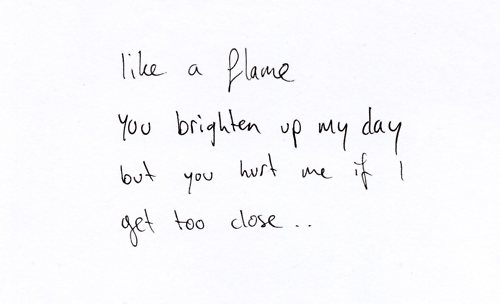 like a flame
you brighten up my day
but you hurt me if I
get too close..